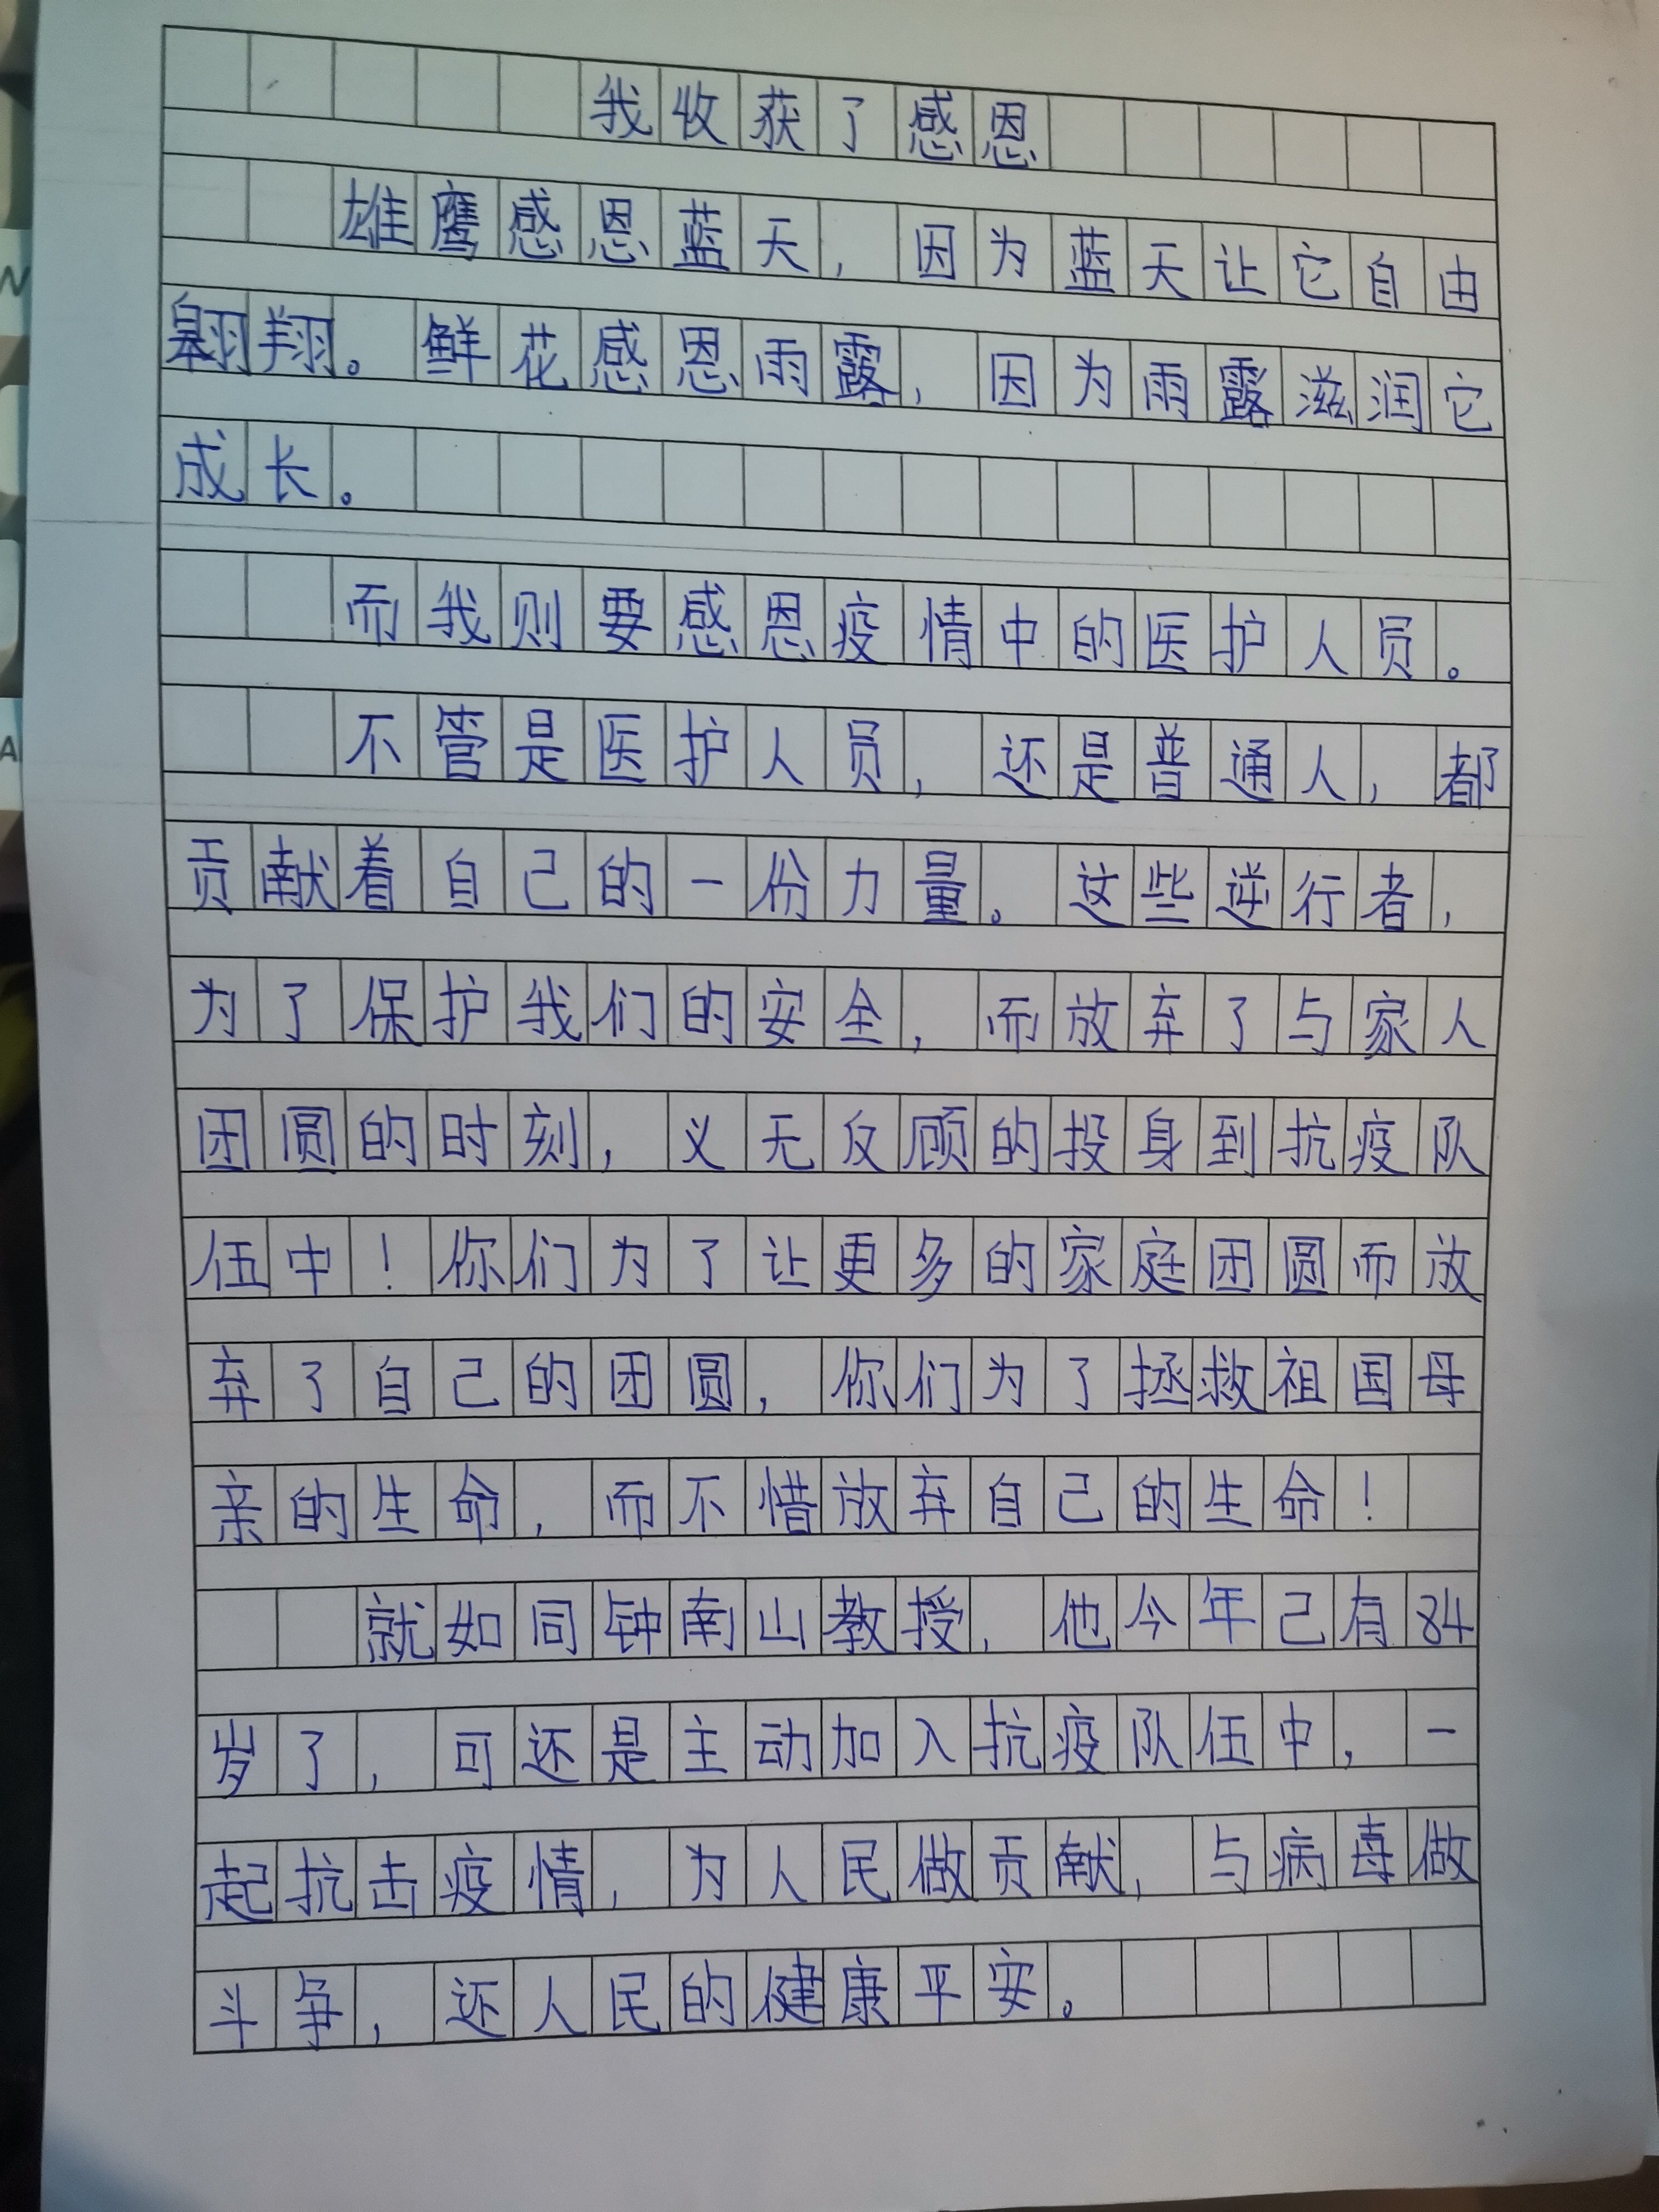 我收获了感恩
雄鹰感恩蓝天，因为蓝天让它自由
翱翔。鲜花感恩雨露，因为雨露滋润它
成长。
而我则要感恩疫情中的医护人员。
不管是医护人员，还是普通人，都
贡献着自己的一份力量。这些逆行者，
为了保护我们的安全，而放弃了与家人
团圆的时刻，义无反顾的投身到抗疫队
伍中！你们为了让更多的家庭团圆而放
弃了自己的团圆，你们为了拯救祖国母
亲的生命，而不惜放弃自己的生命！
就如同钟南山教授，他今年己有84
岁了，可还是主动加入抗疫队伍中，一
起抗击疫情，为人民做贡献，与病毒做
斗争，还人民的健康平安。